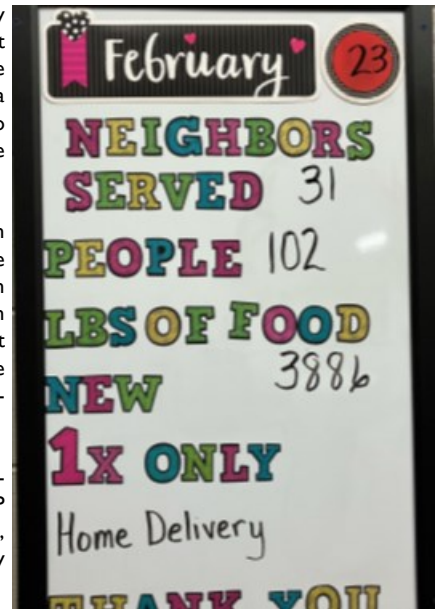 February 23
NEIGHBORS
SERVED 31
PEOPLE 102
LBS OF FOOD
3886
NEW
1X ONLY
Home Delivery
THANK YOU